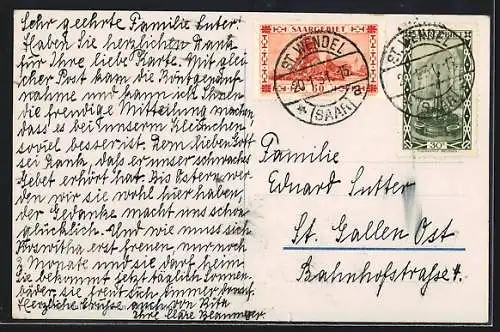 Sehr geehrte Familie Suter!
Haben Sie herzlichen Dank
für Ihre liebe Karte. Mit gleich
cher Post kam die Röntgenauf
nahme und kann ich Ihnen
die freudige Mitteilung machen
dass es bei unserm Kleinchen
soviel besser ist. Dem lieben Gott
sei Dank, daß er unser schwaches
Gebet erhört hat. Bis Ostern wer
den wir sie wohl hier haben,
der Gedanke macht uns schon
glücklich. Und wie muss sich
Roswitha erst freuen, nur noch
3 Monate und sie darf heim
sie bekommt jetzt täglich Sonnen
bäder, sie freut sich immer
Herzliche Grüsse auch von Rita
Ihre Cläre
SAARGEBIET
ST. WENDEL
(SAAR)
ST. WENDEL
(SAAR)
30
Familie
Eduard Sutter
St. Gallen Ost
Bahnhofstraße 4.